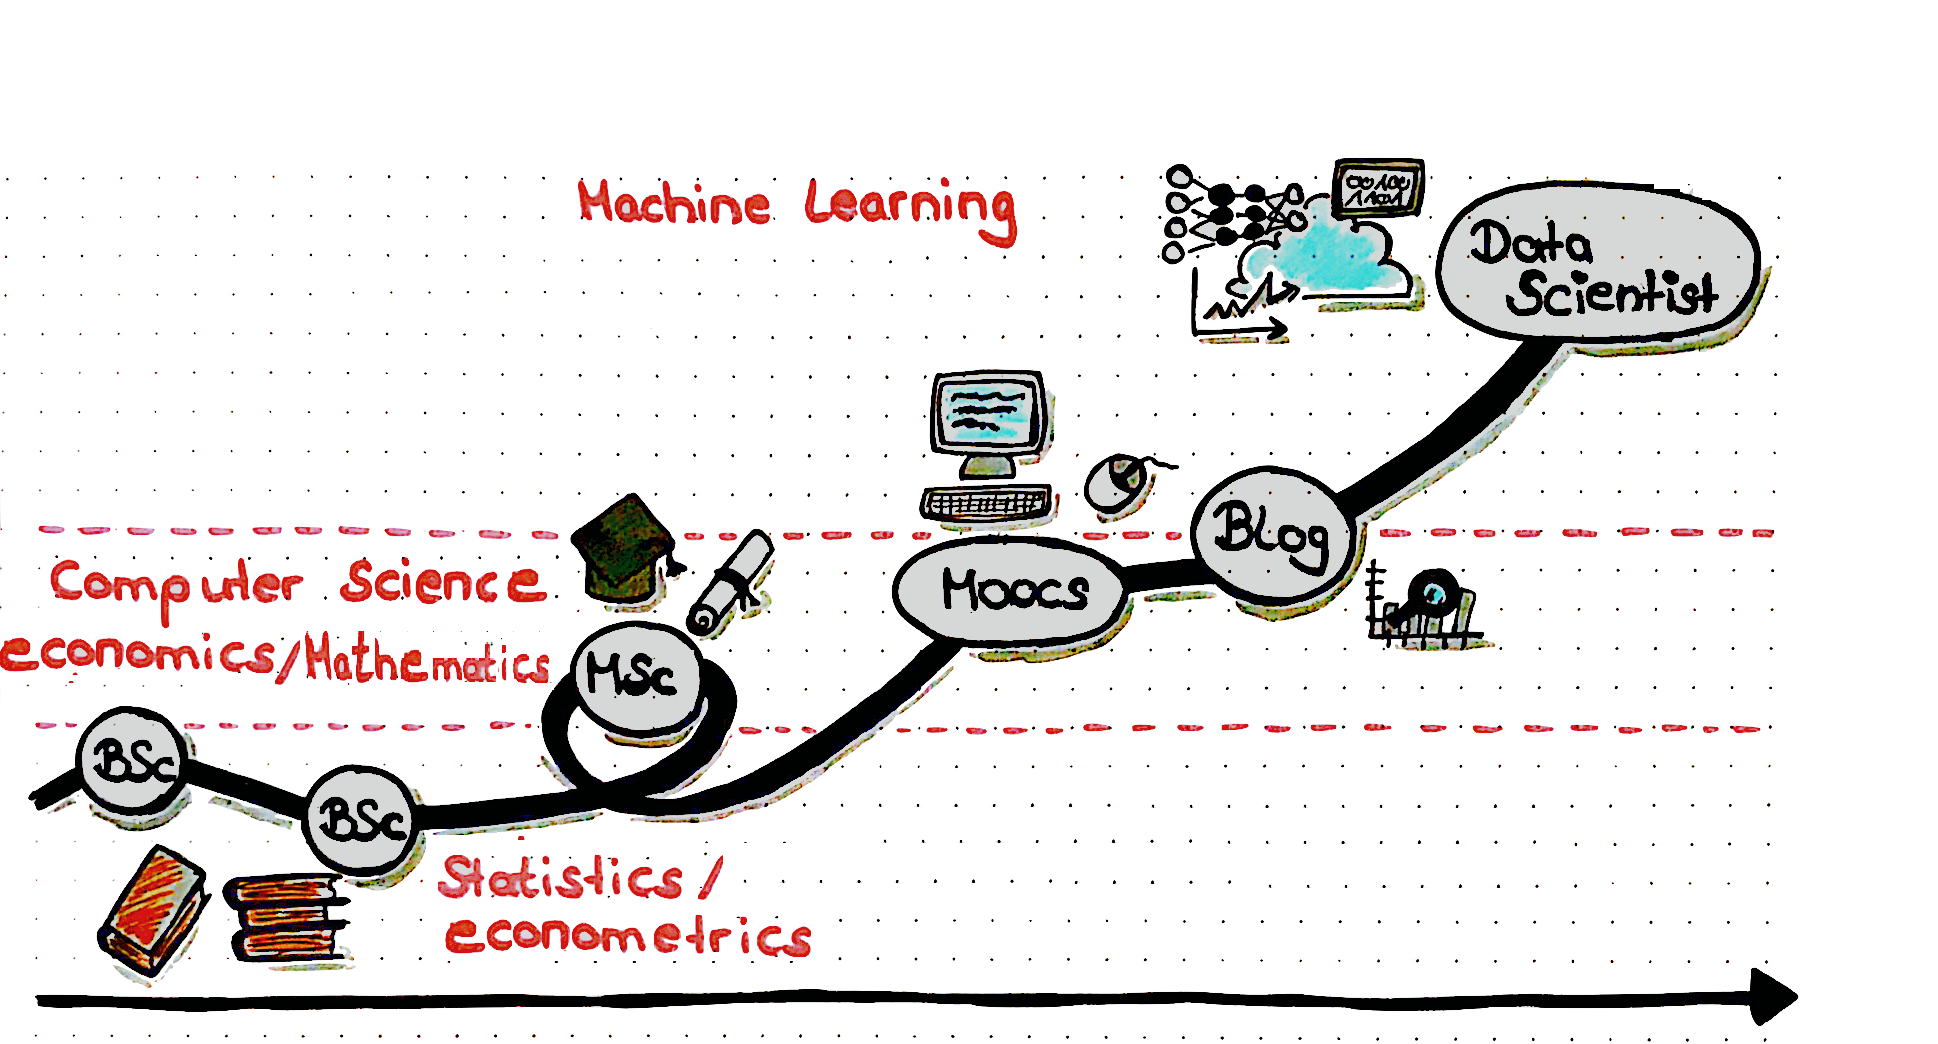 Machine Learning
00100
11101
Data
Scientist
Blog
Computer Science
economics/Mathematics
Moocs
MSc
BSc
BSc
Statistics/
econometrics